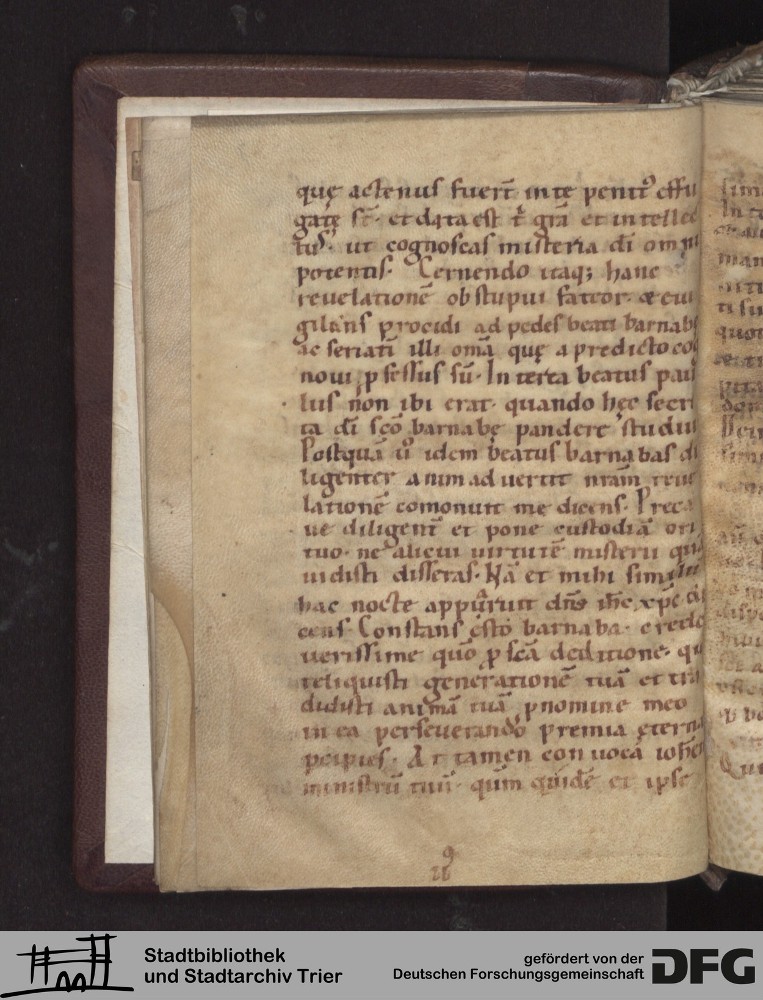 quę actenus fuer̄t in te penit᷒ effu
gatę st̄. et data est t̄ gr̄a et intellec
tus. ut cognoscas misteria dī omni
potentis. Cernendo itaq; hanc
reuelationē obstupui fateor. & eui
gilans procidi ad pedes beati barnabę
ac seriatī illi om̄a quę a predicto cog
noui p̄fessus sū. Interea beatus pau
lus non ibi erat. quando hęc secre
ta dī sc̄o barnabę pandere studui
Postquā u̇ idem beatus barnabas di
ligenter animaduertit nr̄am reue
lationē comonuit me dicens. Preca
ue diligent̄ et pone custodiā ori
tuo. ne alicui uirtutē misterii quā
uidisti disseras. Nā et mihi similit̄
hac nocte apparuit dn̄s ih̄c xp̄c di
cens. Constans esto barnaba. crede
uerissime quō ꝓ sc̄a deditione. qu
reliquisti generationē tuā et tra
didisti animā tuā ꝓ nomine meo
in ea perseuerando premia ęterna
ꝑcipies. Attamen conuoca ioh̄em
ministrū tuū. qm̄ quidē et ipse
9
Stadtbibliothek
und Stadtarchiv Trier
gefördert von der
Deutschen Forschungsgemeinschaft
DFG